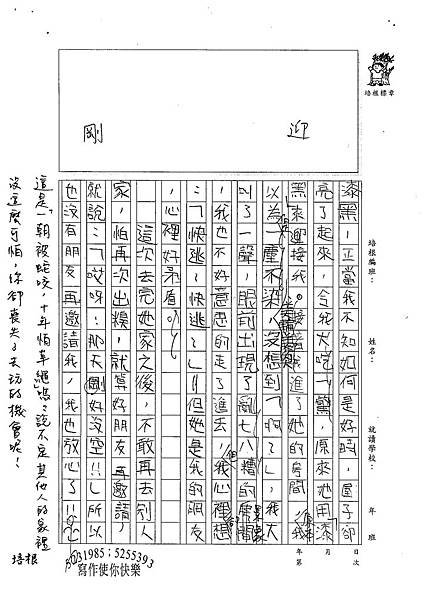 培根標章
迎
剛
培根編班：
姓名：
就讀學校：
年 班
年 月 日
第 次
漆黑，正當我不知如何是好時，屋子卻
亮了起來，令我大吃一驚，原來她用漆
黑來迎接我。接著我進了她的房間，我
以為一塵不染，沒想到「啊～」，我大
叫了一聲，眼前出現了亂七八糟的房間
，我也不好意思的走了進去，我心裡想
：「快逃～快逃～」但她是我的朋友
，心裡好矛盾。
這次去完她家之後，不敢再去別人
家，怕再次出糗，就算好朋友再邀請，
就說：「哎呀！那天剛好沒空!!」所以
也沒有朋友再邀請我，我也放心了!!
這是「一朝被蛇咬，十年怕草繩嗎？說不定其他人的家裡
沒這麼可怕，你卻喪失了去玩的機會呢！
培根
5231985；5255393
寫作使你快樂